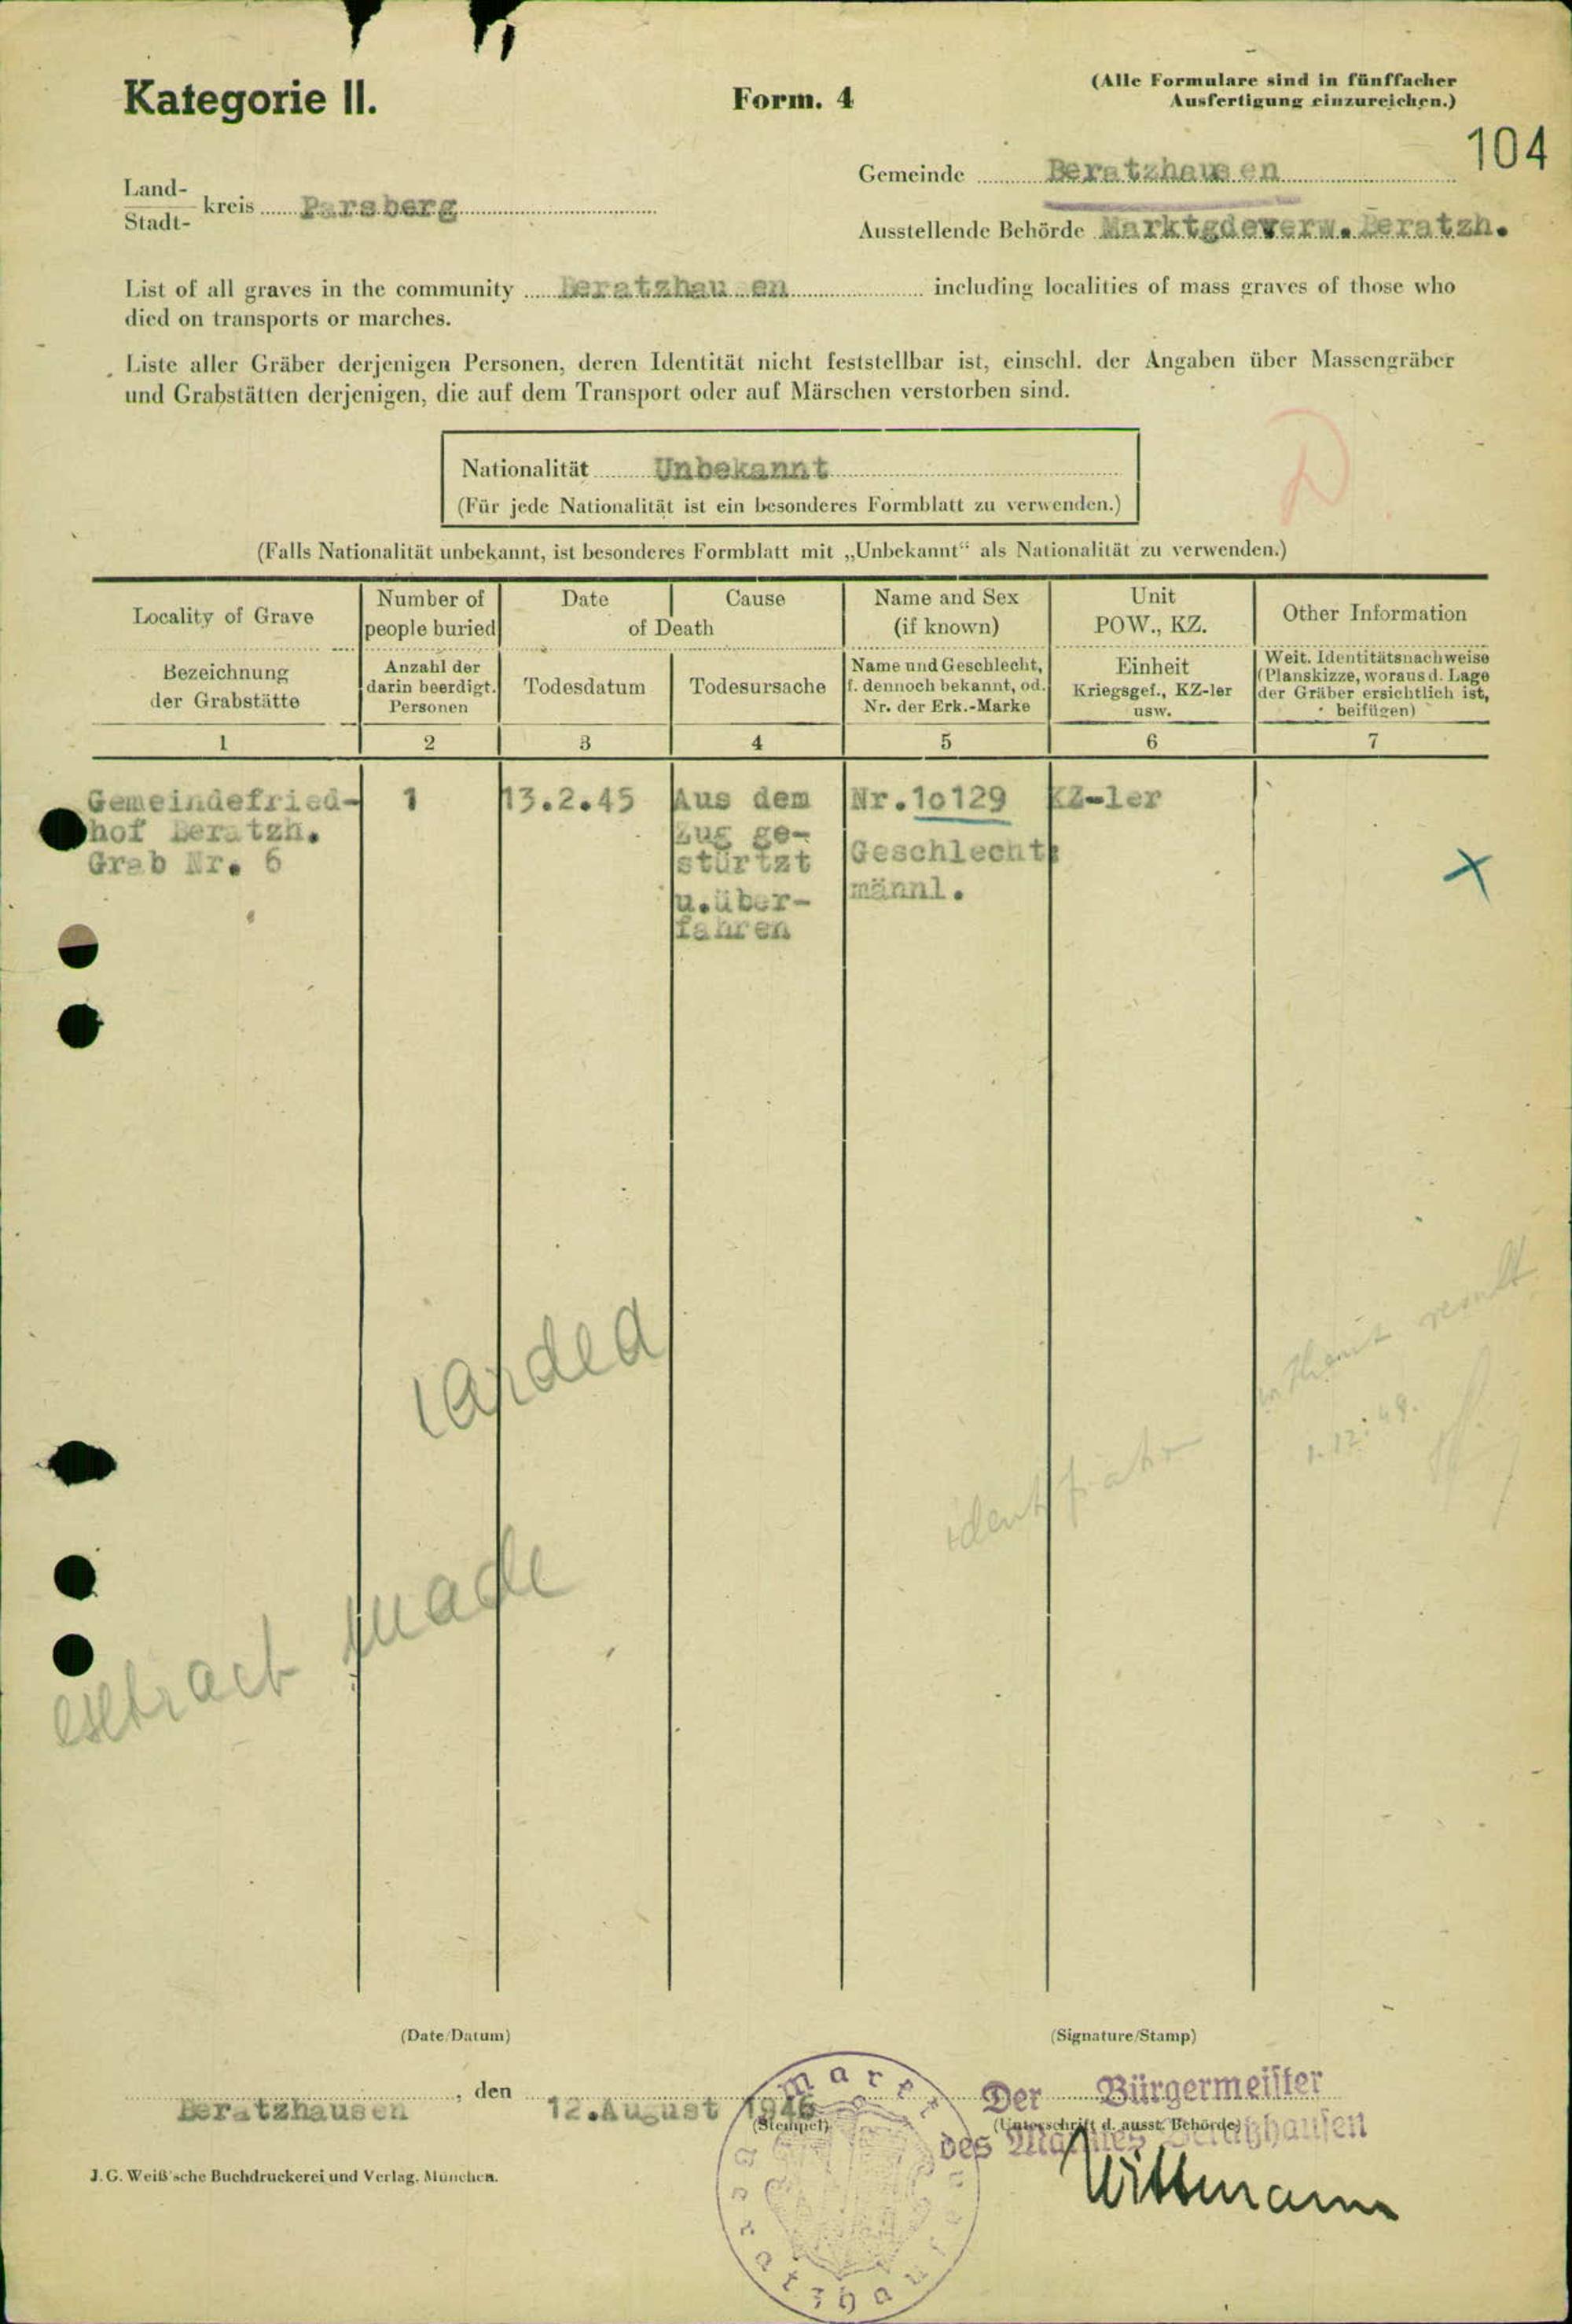 Kategorie II.
Form. 4
(Alle Formulare sind in fünffacher
Ausfertigung einzureichen.)
104
Gemeinde Beratzhausen
Land-
Stadt- kreis Parsberg
Ausstellende Behörde Marktgdeverw. Beratzh.
List of all graves in the community Beratzhausen including localities of mass graves of those who
died on transports or marches.
Liste aller Gräber derjenigen Personen, deren Identität nicht feststellbar ist, einschl. der Angaben über Massengräber
und Grabstätten derjenigen, die auf dem Transport oder auf Märschen verstorben sind.
D
Nationalität Unbekannt
(Für jede Nationalität ist ein besonderes Formblatt zu verwenden.)
(Falls Nationalität unbekannt, ist besonderes Formblatt mit „Unbekannt“ als Nationalität zu verwenden.)
Locality of Grave
Number of
people buried
Date
Cause
of Death
Name and Sex
(if known)
Unit
POW., KZ.
Other Information
Bezeichnung
der Grabstätte
Anzahl der
darin beerdigt.
Personen
Todesdatum
Todesursache
Name und Geschlecht,
f. dennoch bekannt, od.
Nr. der Erk.-Marke
Einheit
Kriegsgef., KZ-ler
usw.
Weit. Identitätsnachweise
(Planskizze, woraus d. Lage
der Gräber ersichtlich ist,
beifügen)
1 2 3 4 5 6 7
Gemeindefried-
hof Beratzh.
Grab Nr. 6
1
13.2.45
Aus dem
Zug ge-
stürtzt
u.über-
fahren
Nr.1o129
Geschlecht:
männl.
KZ-ler
X
carded
without result
1.12.49.
extract made
(Date/Datum)
(Signature/Stamp)
Beratzhausen, den 12.August 1946
(Stempel)
Der Bürgermeister
(Unterschrift d. ausst. Behörde)
des Marktes Beratzhausen
Wittmann
Markt
Beratzhausen
J. G. Weiß'sche Buchdruckerei und Verlag, München.